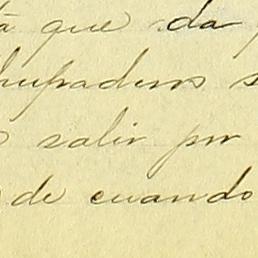 que da
chupaderos s
salir por
de cuando